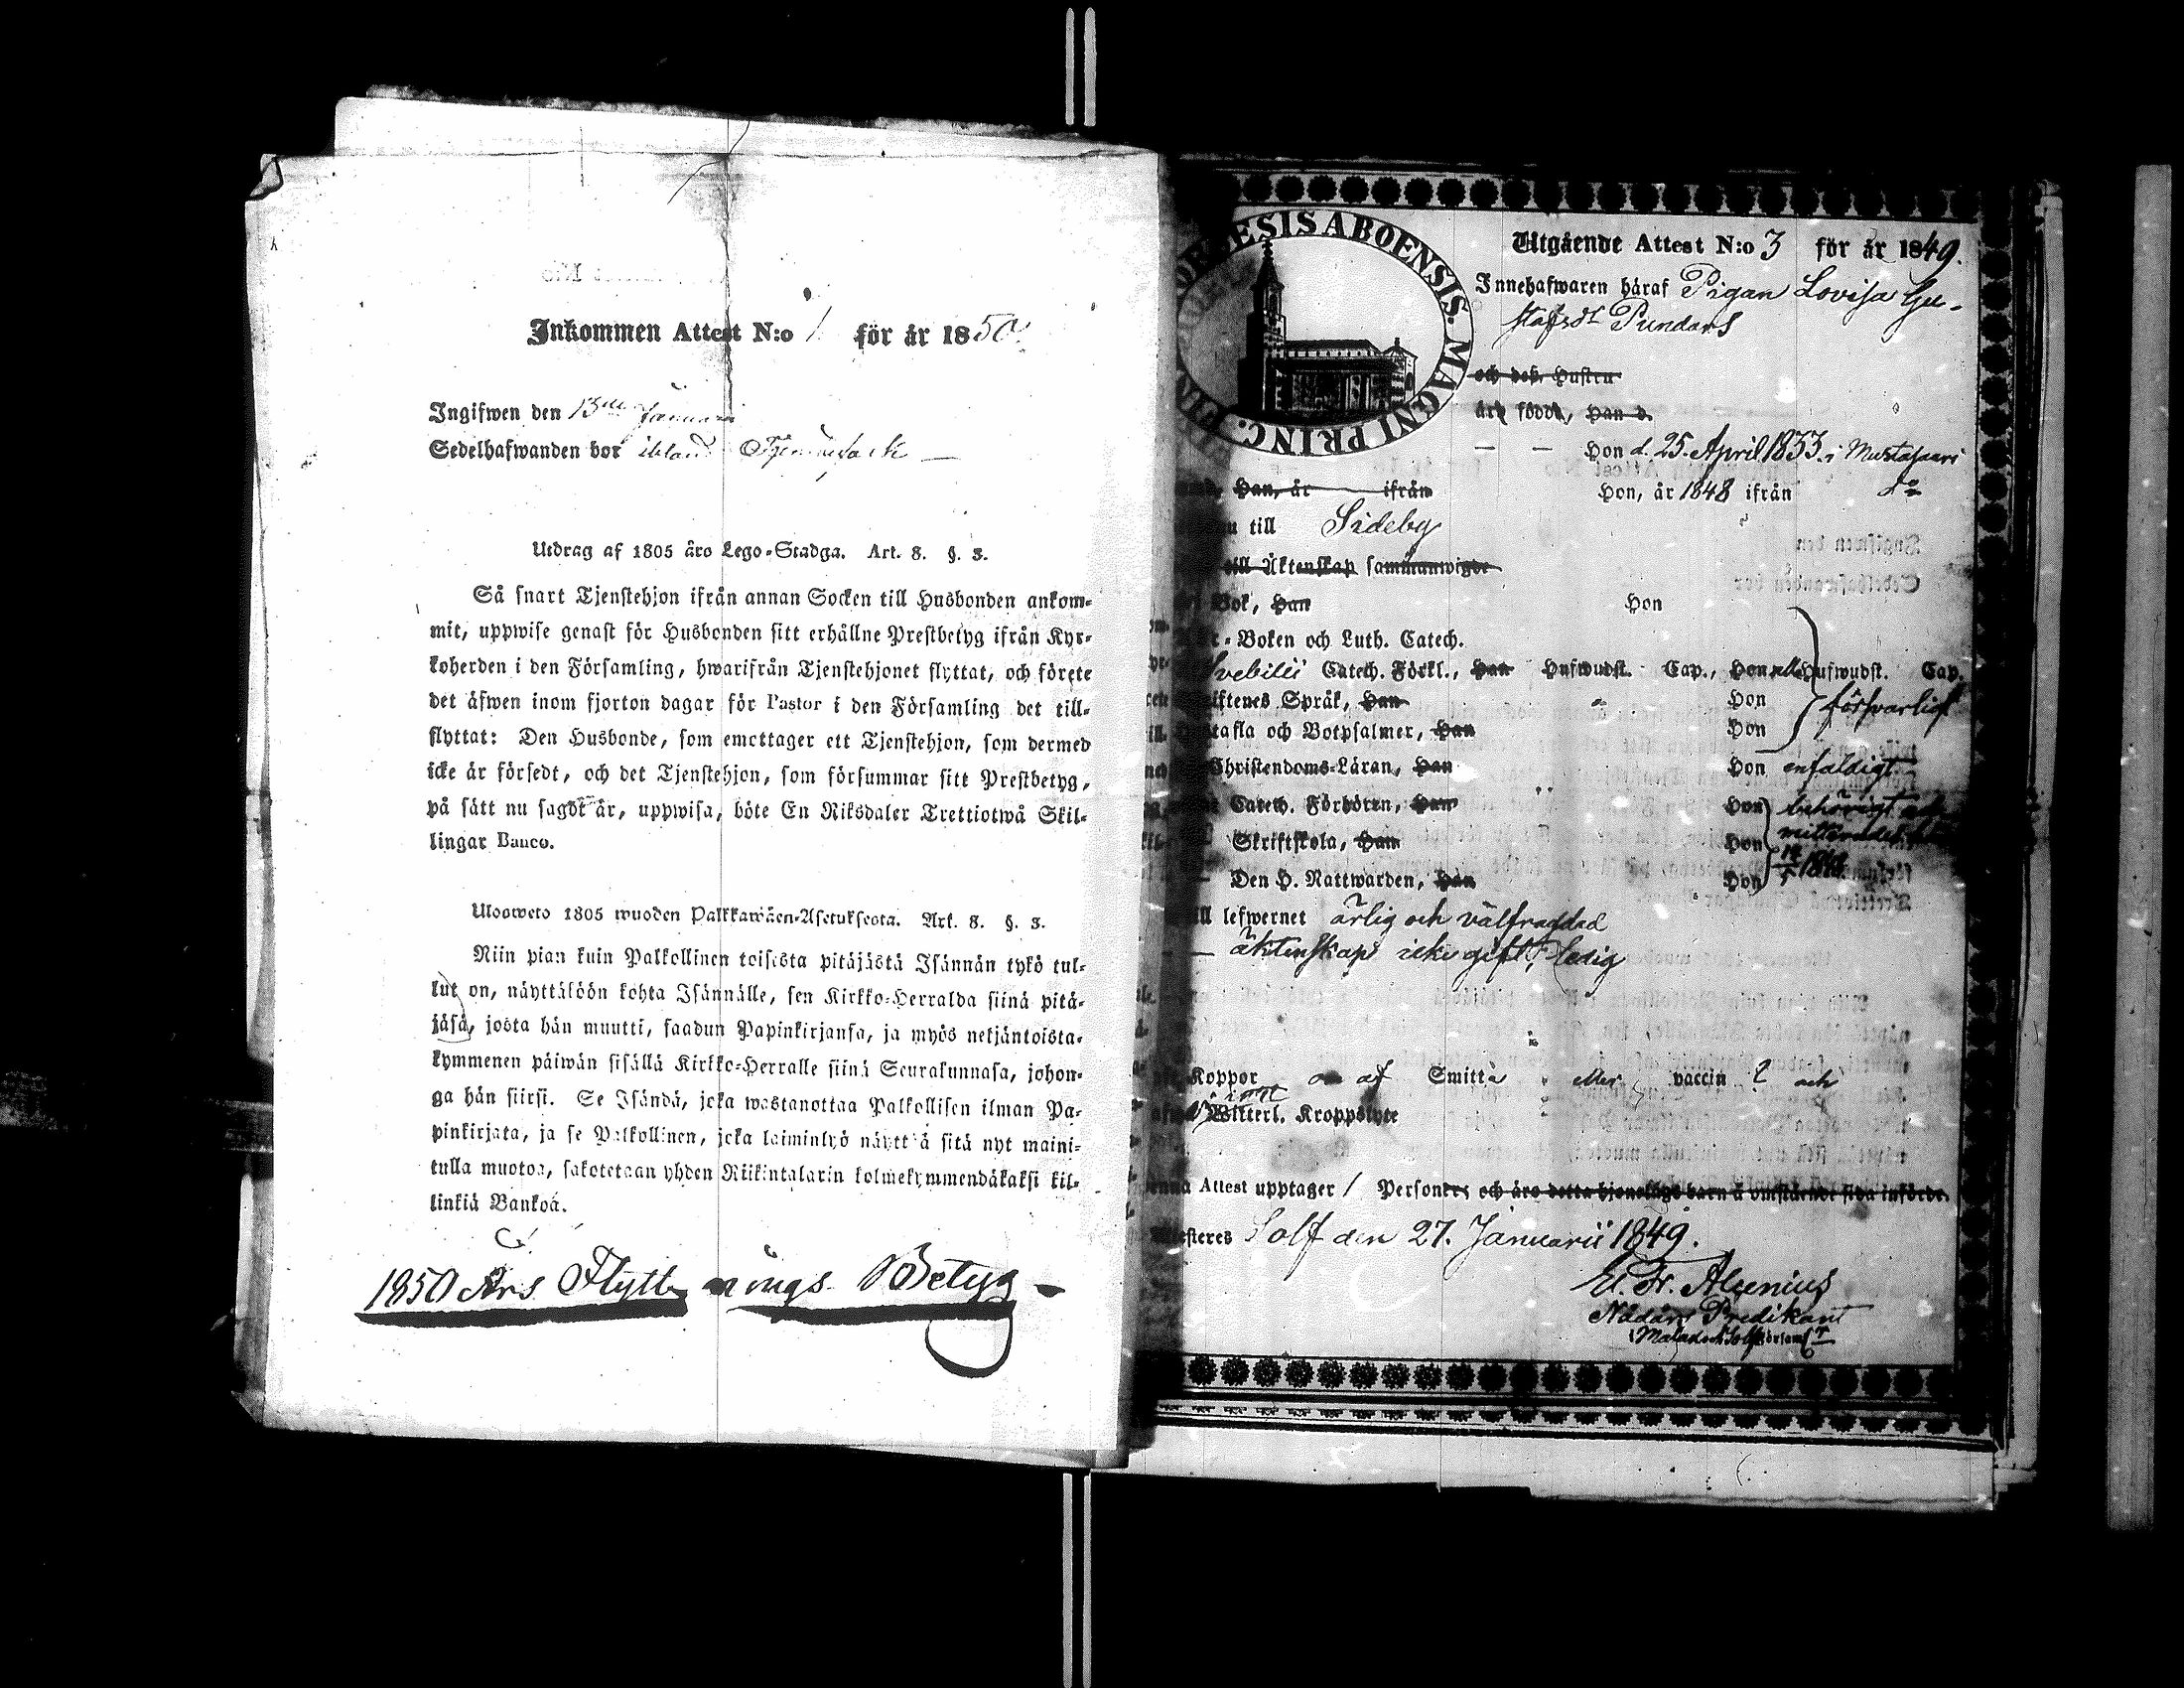 Inkommen Attest N:o 1 för år 1850
Ingifwen den 13de Januari
Sedelhafwanden bor ibland
Utdrag af 1805 års Lego-Stadga. Art. 8. §. 3.
Så snart Tjenstehjon ifrån annan Socken till Husbonden ankom-
mit, uppwise genast för Husbonden sitt erhållne Prestbetyg ifrån Kyr-
koherden i den Församling, hwarifrån Tjenstehjonet flyttat, och förete
det äfwen inom fjorton dagar för Pastor i den Församling det till-
flyttat: Den Husbonde, som emottager ett Tjenstehjon, som dermed
icke är försedt, och det Tjenstehjon, som försummar sitt Prestbetyg,
på sätt nu sagdt är, uppwisa, böte En Riksdaler Trettiotwå Skil-
lingar Banco.
Ulosweto 1805 wuoden Palkkawäen-Asetuksesta. Art. 8. §. 3.
Niin pian kuin Palkollinen toisesta pitäjästä Isännän tykö tul-
lut on, näyttäköön kohta Isännälle, sen Kirkko-Herralda siinä pitä-
jäsä, josta hän muutti, saadun Papinkirjansa, ja myös neljäntoista-
kymmenen päiwän sisällä Kirkko-Herralle siinä Seurakunnasa, johon-
ga hän siirsi. Se Isändä, joka wastanottaa Palkollisen ilman Pa-
pinkirjata, ja se Palkollinen, joka laiminlyö näyttää sitä nyt maini-
tulla muotoa, sakotetaan yhden Riikintalarin kolmekymmendäkaksi kil-
linkiä Bankoa.
1850 Års Flyttnings Betyg
ESIS ABOENSIS. MAGNI PRINC. FIN
Utgående Attest N:o 3 för år 1849.
Innehafwaren häraf Pigan Lovisa Gu-
stafsdr Pundars
och deß Hustru
äro födde, Han d.
Hon d. 25. April 1833. i Mustasaari
Han, år ifrån Hon, år 1848 ifrån do
till Sideby
till Äktenskap sammanwigde
Bok, Han Hon
Boken och Luth. Catech.
Svebilii Catech. Förkl., Han Hufwudst. Cap., Hon alla Hufwudst. Cap.
Språk, Han Hon försvarligt
tafla och Botpsalmer, Han Hon
Christendoms-Läran, Han Hon enfaldigt
Catech. Förhören, Han Hon behörigt
Skriftskola, Han Hon
Den H. Nattwarden, Han Hon
till lefwernet ärlig och välfrägdad
äktenskap icke gift, ledig
Koppor af Smitta eller vaccin ? och
Witterl. Kroppslyte
Attest upptager 1 Personer och äro detta hjonelags barn å omstående sida införde.
Solf den 27. Januarii 1849.
Alcenius
Nådårs Predikant